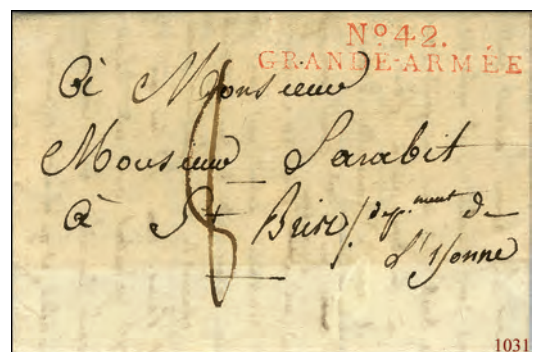 Nº 42.
GRANDE-ARMÉE
à Monsieur
Monsieur Sarabit
à St Brix / dep.ment de
L'Yonne
8
1031